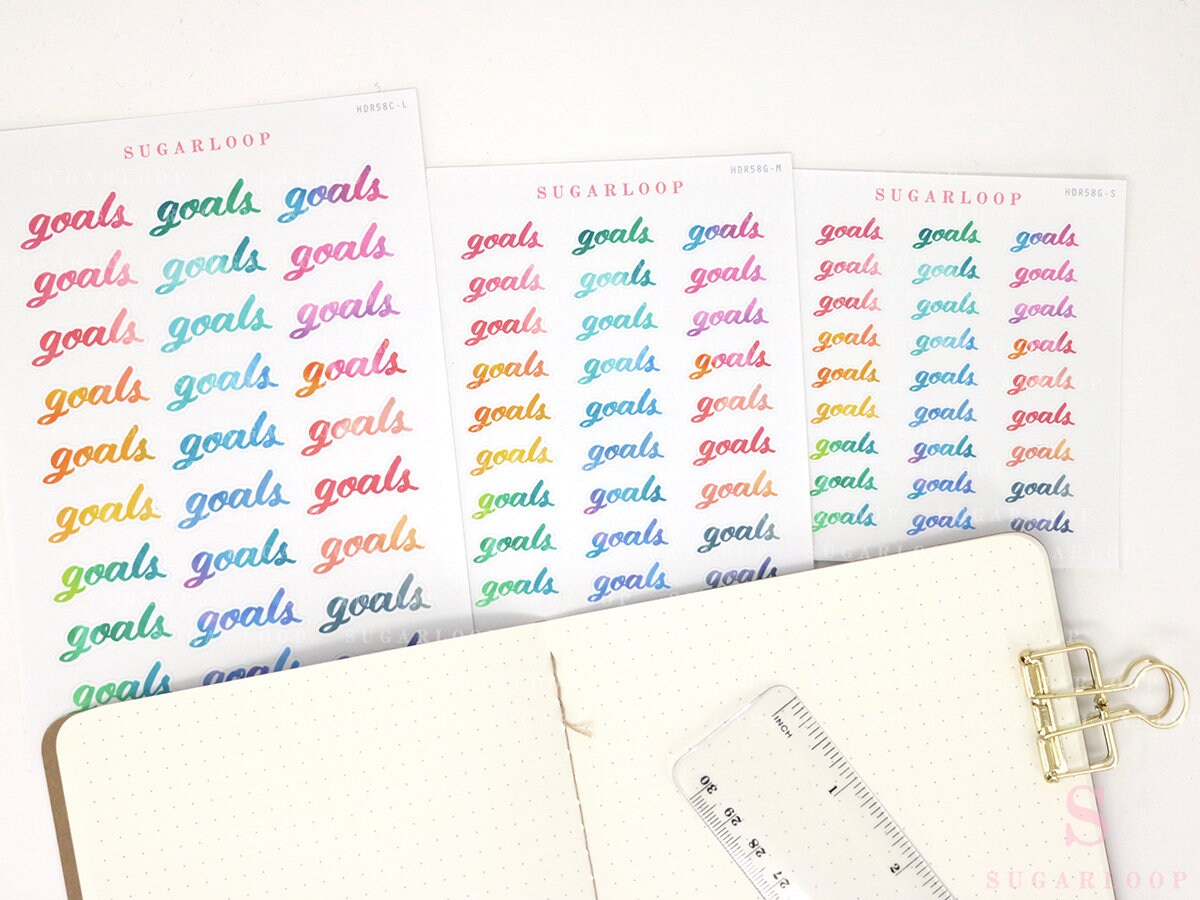 HDR58C-L
SUGARLOOP
goals goals goals
goals goals goals
goals goals goals
goals goals goals
goals goals goals
goals goals goals
goals goals goals
goals goals goals
goals goals
HDR58G-M
SUGARLOOP
goals goals goals
goals goals goals
goals goals goals
goals goals goals
goals goals goals
goals goals goals
goals goals goals
goals goals goals
goals goals goals
HDR58G-S
SUGARLOOP
goals goals goals
goals goals goals
goals goals goals
goals goals goals
goals goals goals
goals goals goals
goals goals goals
goals goals goals
goals goals goals
INCH
1
2
30
29
28
27
S
SUGARLOOP